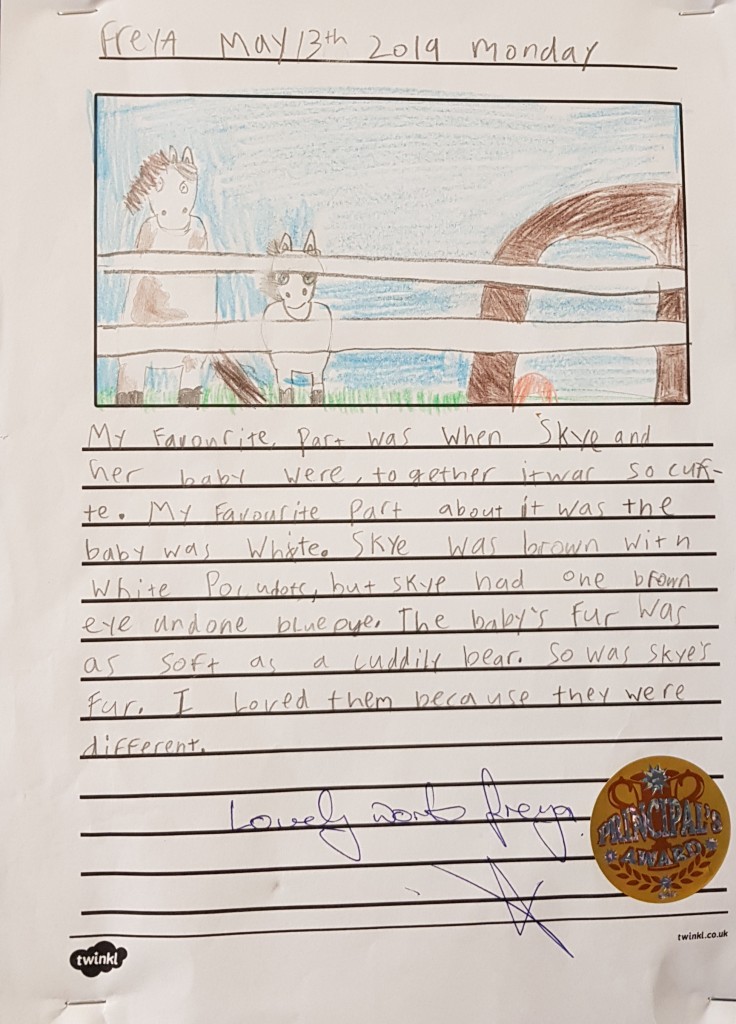 FreyA May 13th 2019 monday
My Favourite Part was when Skye and
her baby were, together it was so cut-
te. My Favourite Part about it was the
baby was White. Skye was brown with
White , but skye had one brown
eye and one blue eye. The baby's Fur was
as soft as a cuddily bear. So was skye's
Fur. I loved them because they were
different.
Lovely work freya.
PRINCIPAL'S
AWARD
twinkl.co.uk
twinkl